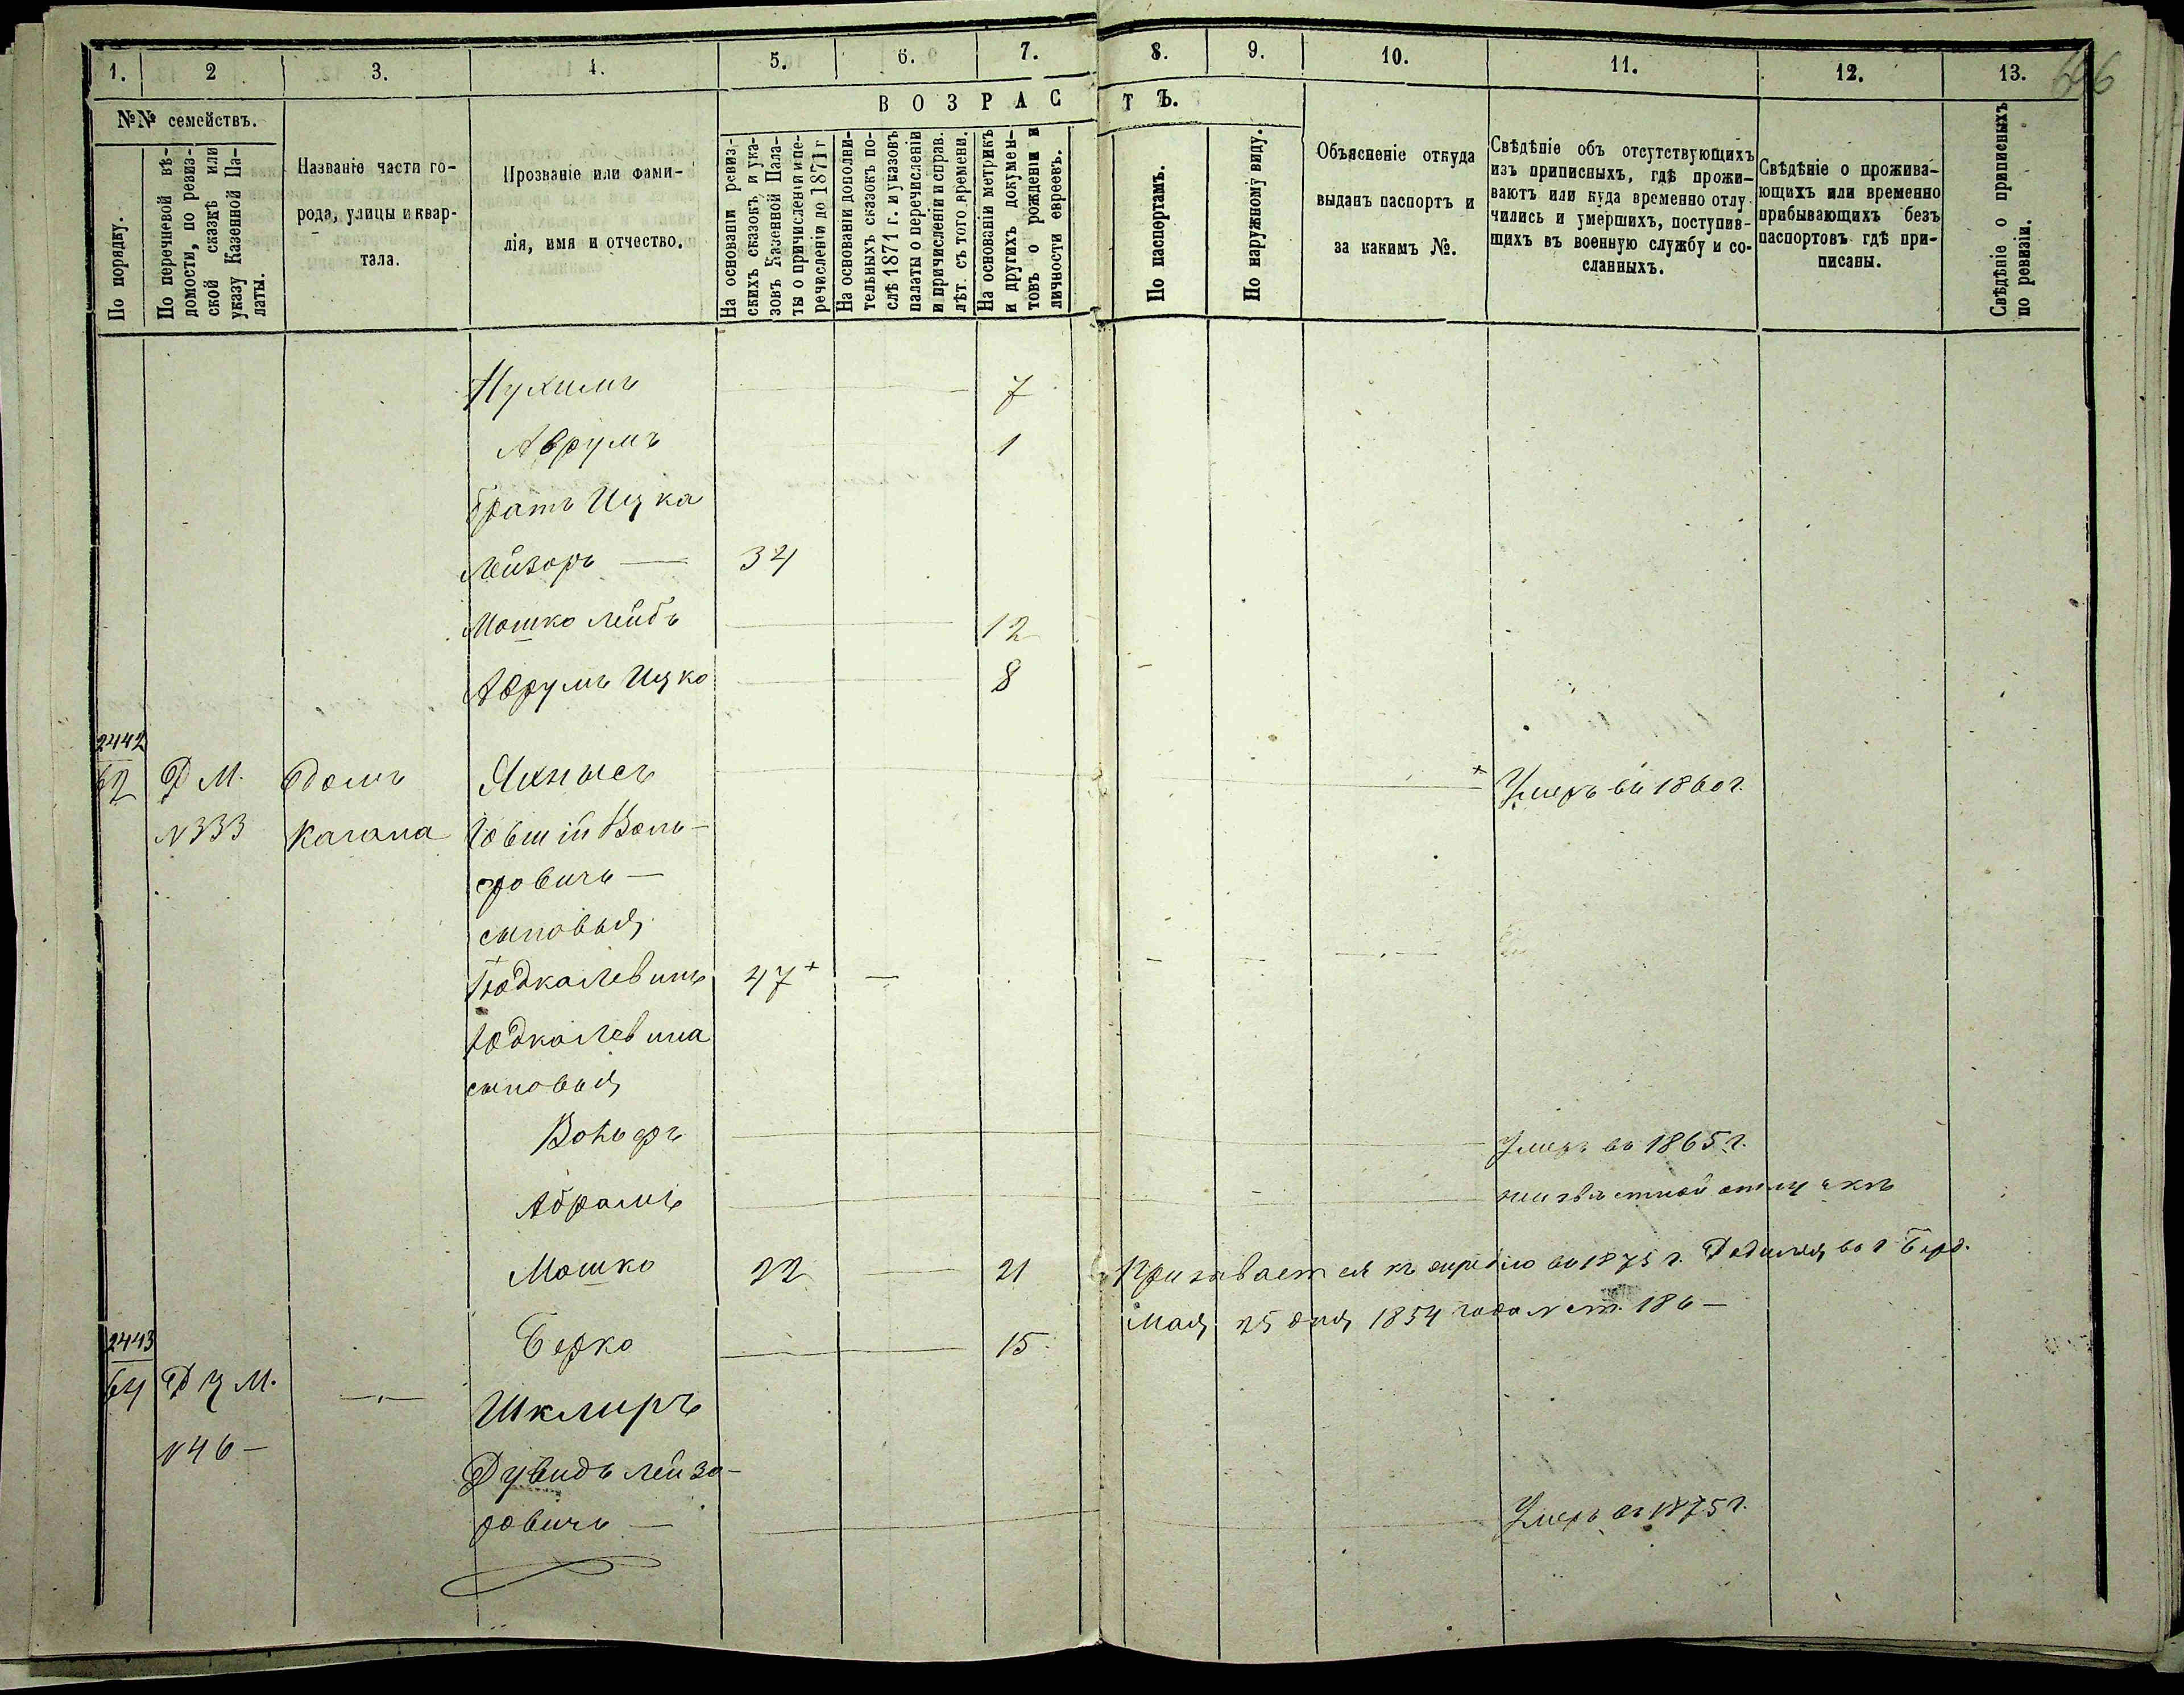 1. 2 3. 4. 5. 6. 7. 8. 9. 10. 11. 12. 13.
В О З Р А С Т Ъ.
№№ семействъ.
По порядку.
По перечневой вѣ-
домости, по ревиз-
ской сказкѣ или
указу Казенной Па-
латы.
Названіе части го-
рода, улицы и квар-
тала.
Прозваніе или фами-
лія, имя и отчество.
На основаніи ревиз-
скихъ сказокъ и ука-
зовъ Казенной Пала-
ты о причисленіи и пе-
речисленіи до 1871 г
На основаніи дополни-
тельныхъ сказокъ по-
слѣ 1871 г. и указовъ
палаты о перечисленіи
и причисленіи и справ.
лѣт. съ того времени.
На основаніи метрикъ
и другихъ докумен-
товъ о рожденіи и
личности евреевъ.
По паспортамъ.
По наружному виду.
Объясненіе откуда
выданъ паспортъ и
за какимъ №.
Свѣдѣніе объ отсутствующихъ
изъ приписныхъ, гдѣ прожи-
ваютъ или куда временно отлу-
чились и умершихъ, поступив-
щихъ въ военную службу и со-
сланныхъ.
Свѣдѣніе о прожива-
ющихъ или временно
прибывающихъ безъ
паспортовъ гдѣ при-
писаны.
Свѣдѣніе о приписныхъ
по ревизіи.
Нухимъ 7
Аврумъ 1
братъ Ицка
Лейзоръ — 34
Мошко Лейбъ 12
Аврумъ Ицко 8
2442
62 Д М. домъ Яхнысъ Умеръ въ 1860 г.
N 333 Кагана Іовшій Воль-
фовичъ —
сыновья
Іодка Левинъ 47 + —
Іодка Левина
сыновья
Вольфъ Умеръ въ 1865 г.
Абрамъ неизвѣстной отлучкѣ
Мошко 22 — 21 Призывается къ жребію въ 1875 г. Родился въ г Берд.
Мая 25 дня 1854 года N ст. 186 —
2443 Берко 15
64 Д Ч М. —.— Шклиръ
N 46 — Дувидъ Лейзо-
ровичъ — Умеръ въ 1875 г.